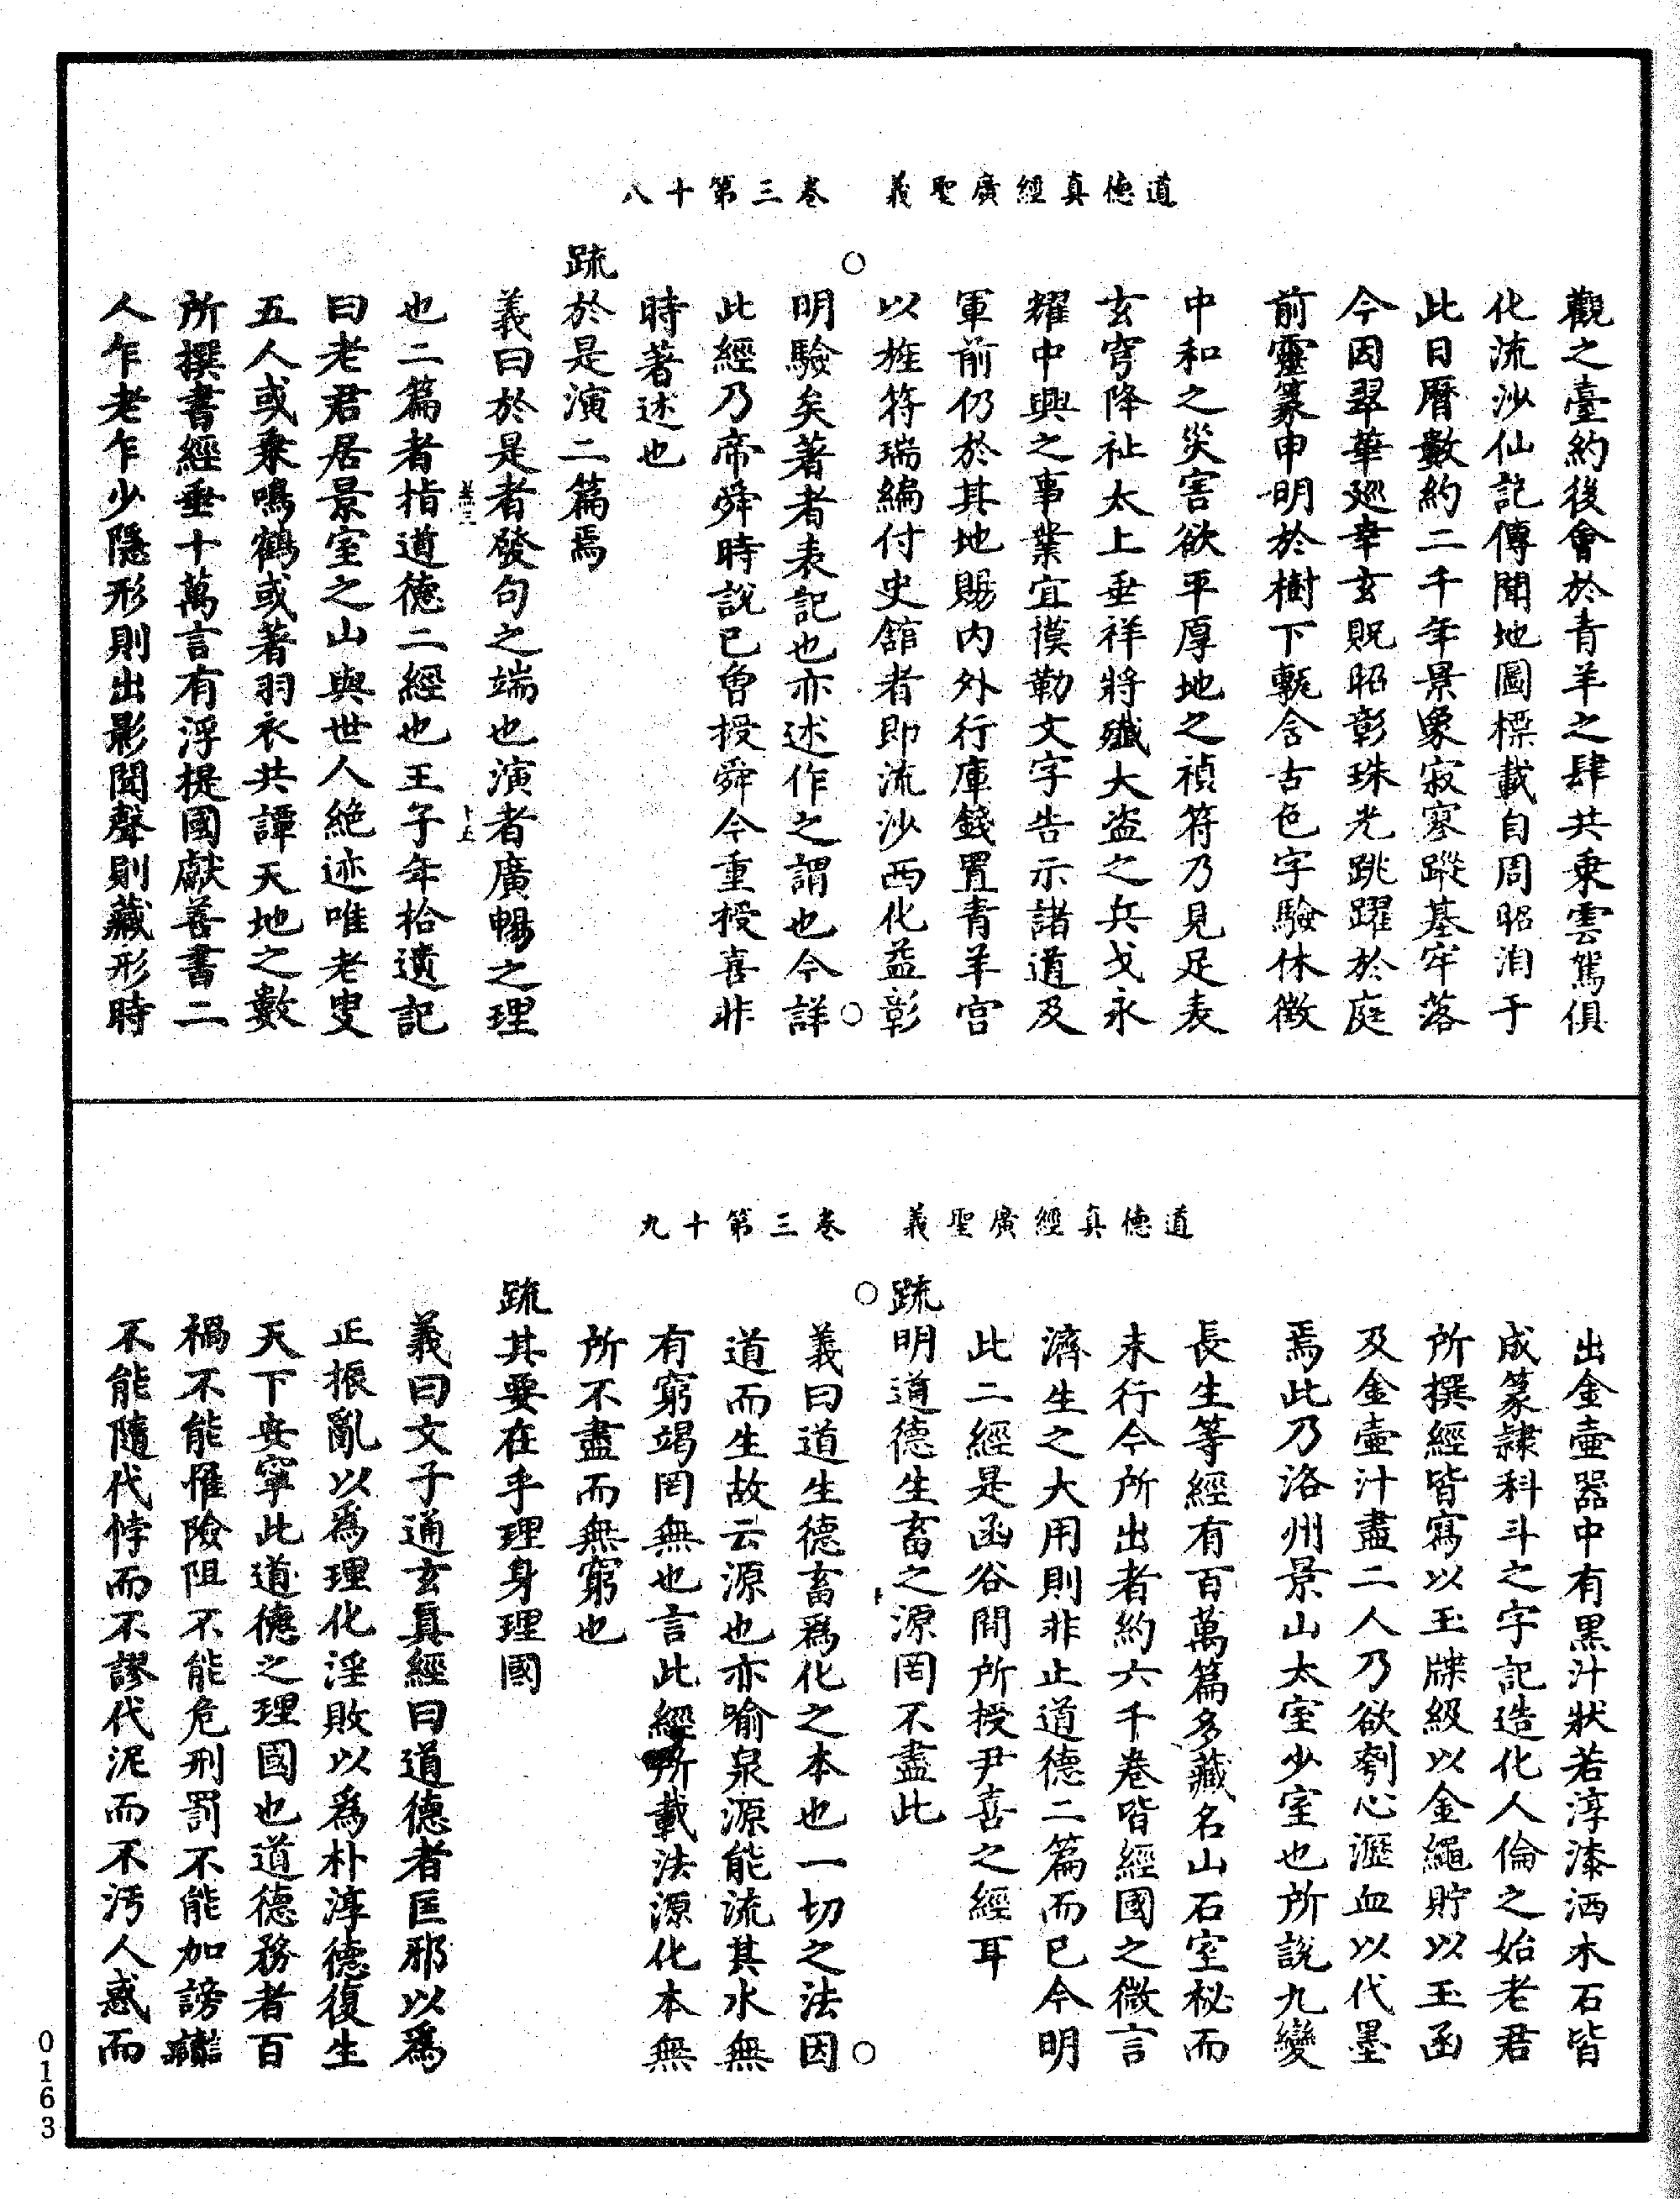 道德真經廣聖義　卷三第十八
觀之臺約後會於青羊之肆共乗雲駕俱
化流沙仙記傳聞地圖標載自周昭洎于
此日曆數約二千年景象寂寥蹤基牢落
今因翠華廵幸玄貺昭彰珠光跳躍於庭
前靈篆申明於樹下甎含古色字驗休徵
中和之災害欲平厚地之禎符乃見足表
玄穹降祉太上垂祥將殲大盗之兵戈永
耀中興之事業宜摸勒文字告示諸道及
軍前仍於其地賜内外行庫錢置青羊宫
以旌符瑞編付史舘者即流沙西化益彰
明驗矣著者表記也亦述作之謂也今詳
此經乃帝舜時說已曽授舜今重授喜非
時著述也
疏於是演二篇焉
義曰於是者發句之端也演者廣暢之理
也二篇者指道德二經也王子年拾遺記
曰老君居景室之山與世人絶迹唯老叟
五人或乗鳴鶴或著羽衣共譚天地之數
所撰書經垂十萬言有浮提國獻善書二
人乍老乍少隱形則出影聞聲則藏形時
道德真經廣聖義　卷三第十九
出金壷器中有黒汁狀若淳漆洒木石皆
成篆隷科斗之字記造化人倫之始老君
所撰經皆寫以玉牒級以金繩貯以玉函
及金壷汁盡二人乃欲刳心瀝血以代墨
焉此乃洛州景山太室少室也所說九變
長生等經有百萬篇多藏名山石室秘而
未行今所出者約六千卷皆經國之微言
濟生之大用則非止道德二篇而已今明
此二經是函谷間所授尹喜之經耳
疏明道德生畜之源罔不盡此
義曰道生德畜爲化之本也一切之法因
道而生故云源也亦喻泉源能流其水無
有窮竭罔無也言此經所載法源化本無
所不盡而無窮也
疏其要在乎理身理國
義曰文子通玄真經曰道德者匡邪以爲
正振亂以爲理化淫敗以爲朴淳德復生
天下安寜此道德之理國也道德務者百
禍不能惟險阻不能危刑罰不能加謗
不能隨代悖而不謬代泥而不汚人惑而
0163